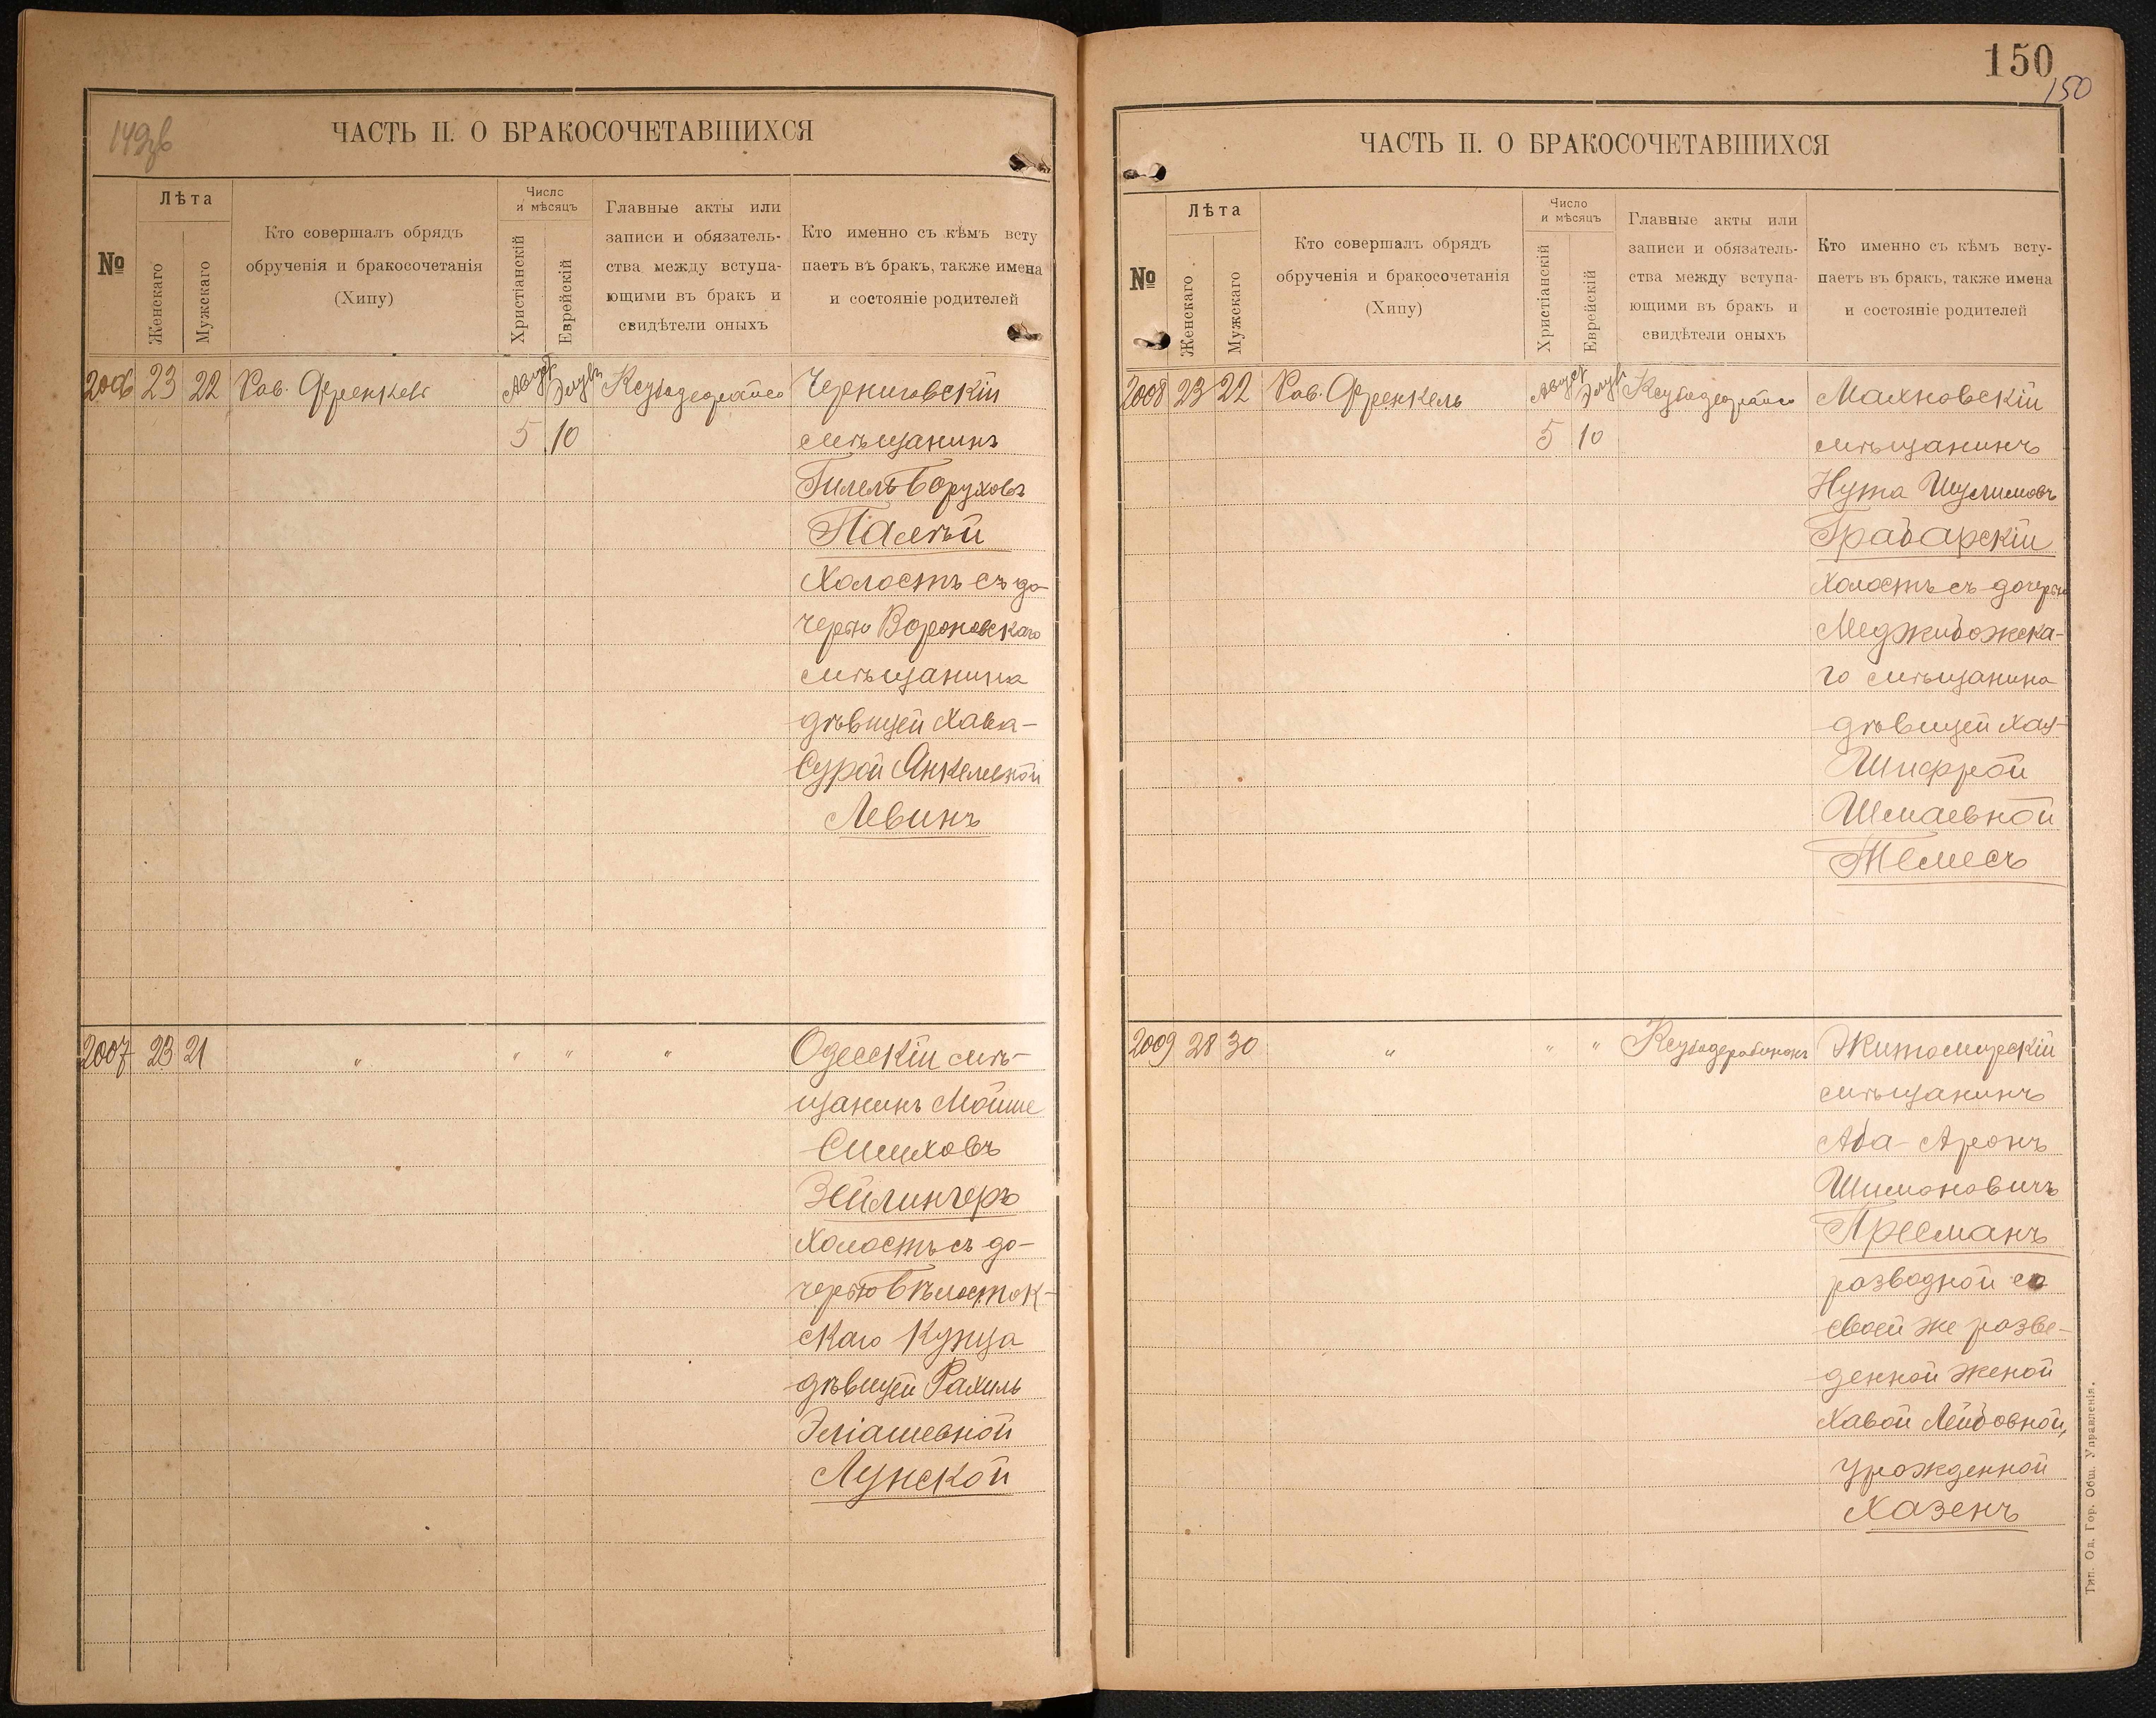 149об
ЧАСТЬ II. О БРАКОСОЧЕТАВШИХСЯ
№
Лѣта
Женскаго
Мужскаго
Кто совершалъ обрядъ
обрученія и бракосочетанія
(Хипу)
Число
и мѣсяцъ
Христіанскій
Еврейскій
Главные акты или
записи и обязатель-
ства между вступа-
ющими въ бракъ и
свидѣтели оныхъ
Кто именно съ кѣмъ всту
паетъ въ бракъ, также имена
и состояніе родителей
2006 23 22 Рав. Френкель Август Элулъ Черниговскій
5 10 мѣщанинъ
Гилель Боруховъ
Палѣй
холостъ съ до-
черью Вороновскаго
мѣщанина
дѣвицей Хава-
Сурой Янкелевной
Левинъ
2007 23 21 " " " " Одесскій мѣ-
щанинъ Мойше
Симховъ
Зейлингеръ
холостъ съ до-
черью Бѣлосток-
скаго купца
дѣвицей Рахиль
Эліашевной
Лунской
150
150
ЧАСТЬ II. О БРАКОСОЧЕТАВШИХСЯ
№
Лѣта
Женскаго
Мужскаго
Кто совершалъ обрядъ
обрученія и бракосочетанія
(Хипу)
Число
и мѣсяцъ
Христіанскій
Еврейскій
Главные акты или
записи и обязатель-
ства между вступа-
ющими въ бракъ и
свидѣтели оныхъ
Кто именно съ кѣмъ всту-
паетъ въ бракъ, также имена
и состояніе родителей
2008 23 22 Рав. Френкель Август Элулъ Махновскій
5 10 мѣщанинъ
Нута Шулимовъ
Грабарскій
холостъ съ дочерью
Меджибожска-
го мѣщанина
дѣвицей Хая-
Шифрой
Шмаевной
Темесъ
2009 28 30 " " " Житомирскій
мѣщанинъ
Аба-Аронъ
Шимоновичъ
Пресманъ
разводной со
своей же разве-
денной женой
Хавой Лейбовной,
урожденной
Хазенъ
Тип. Од. Гор. Общ. Управленія.